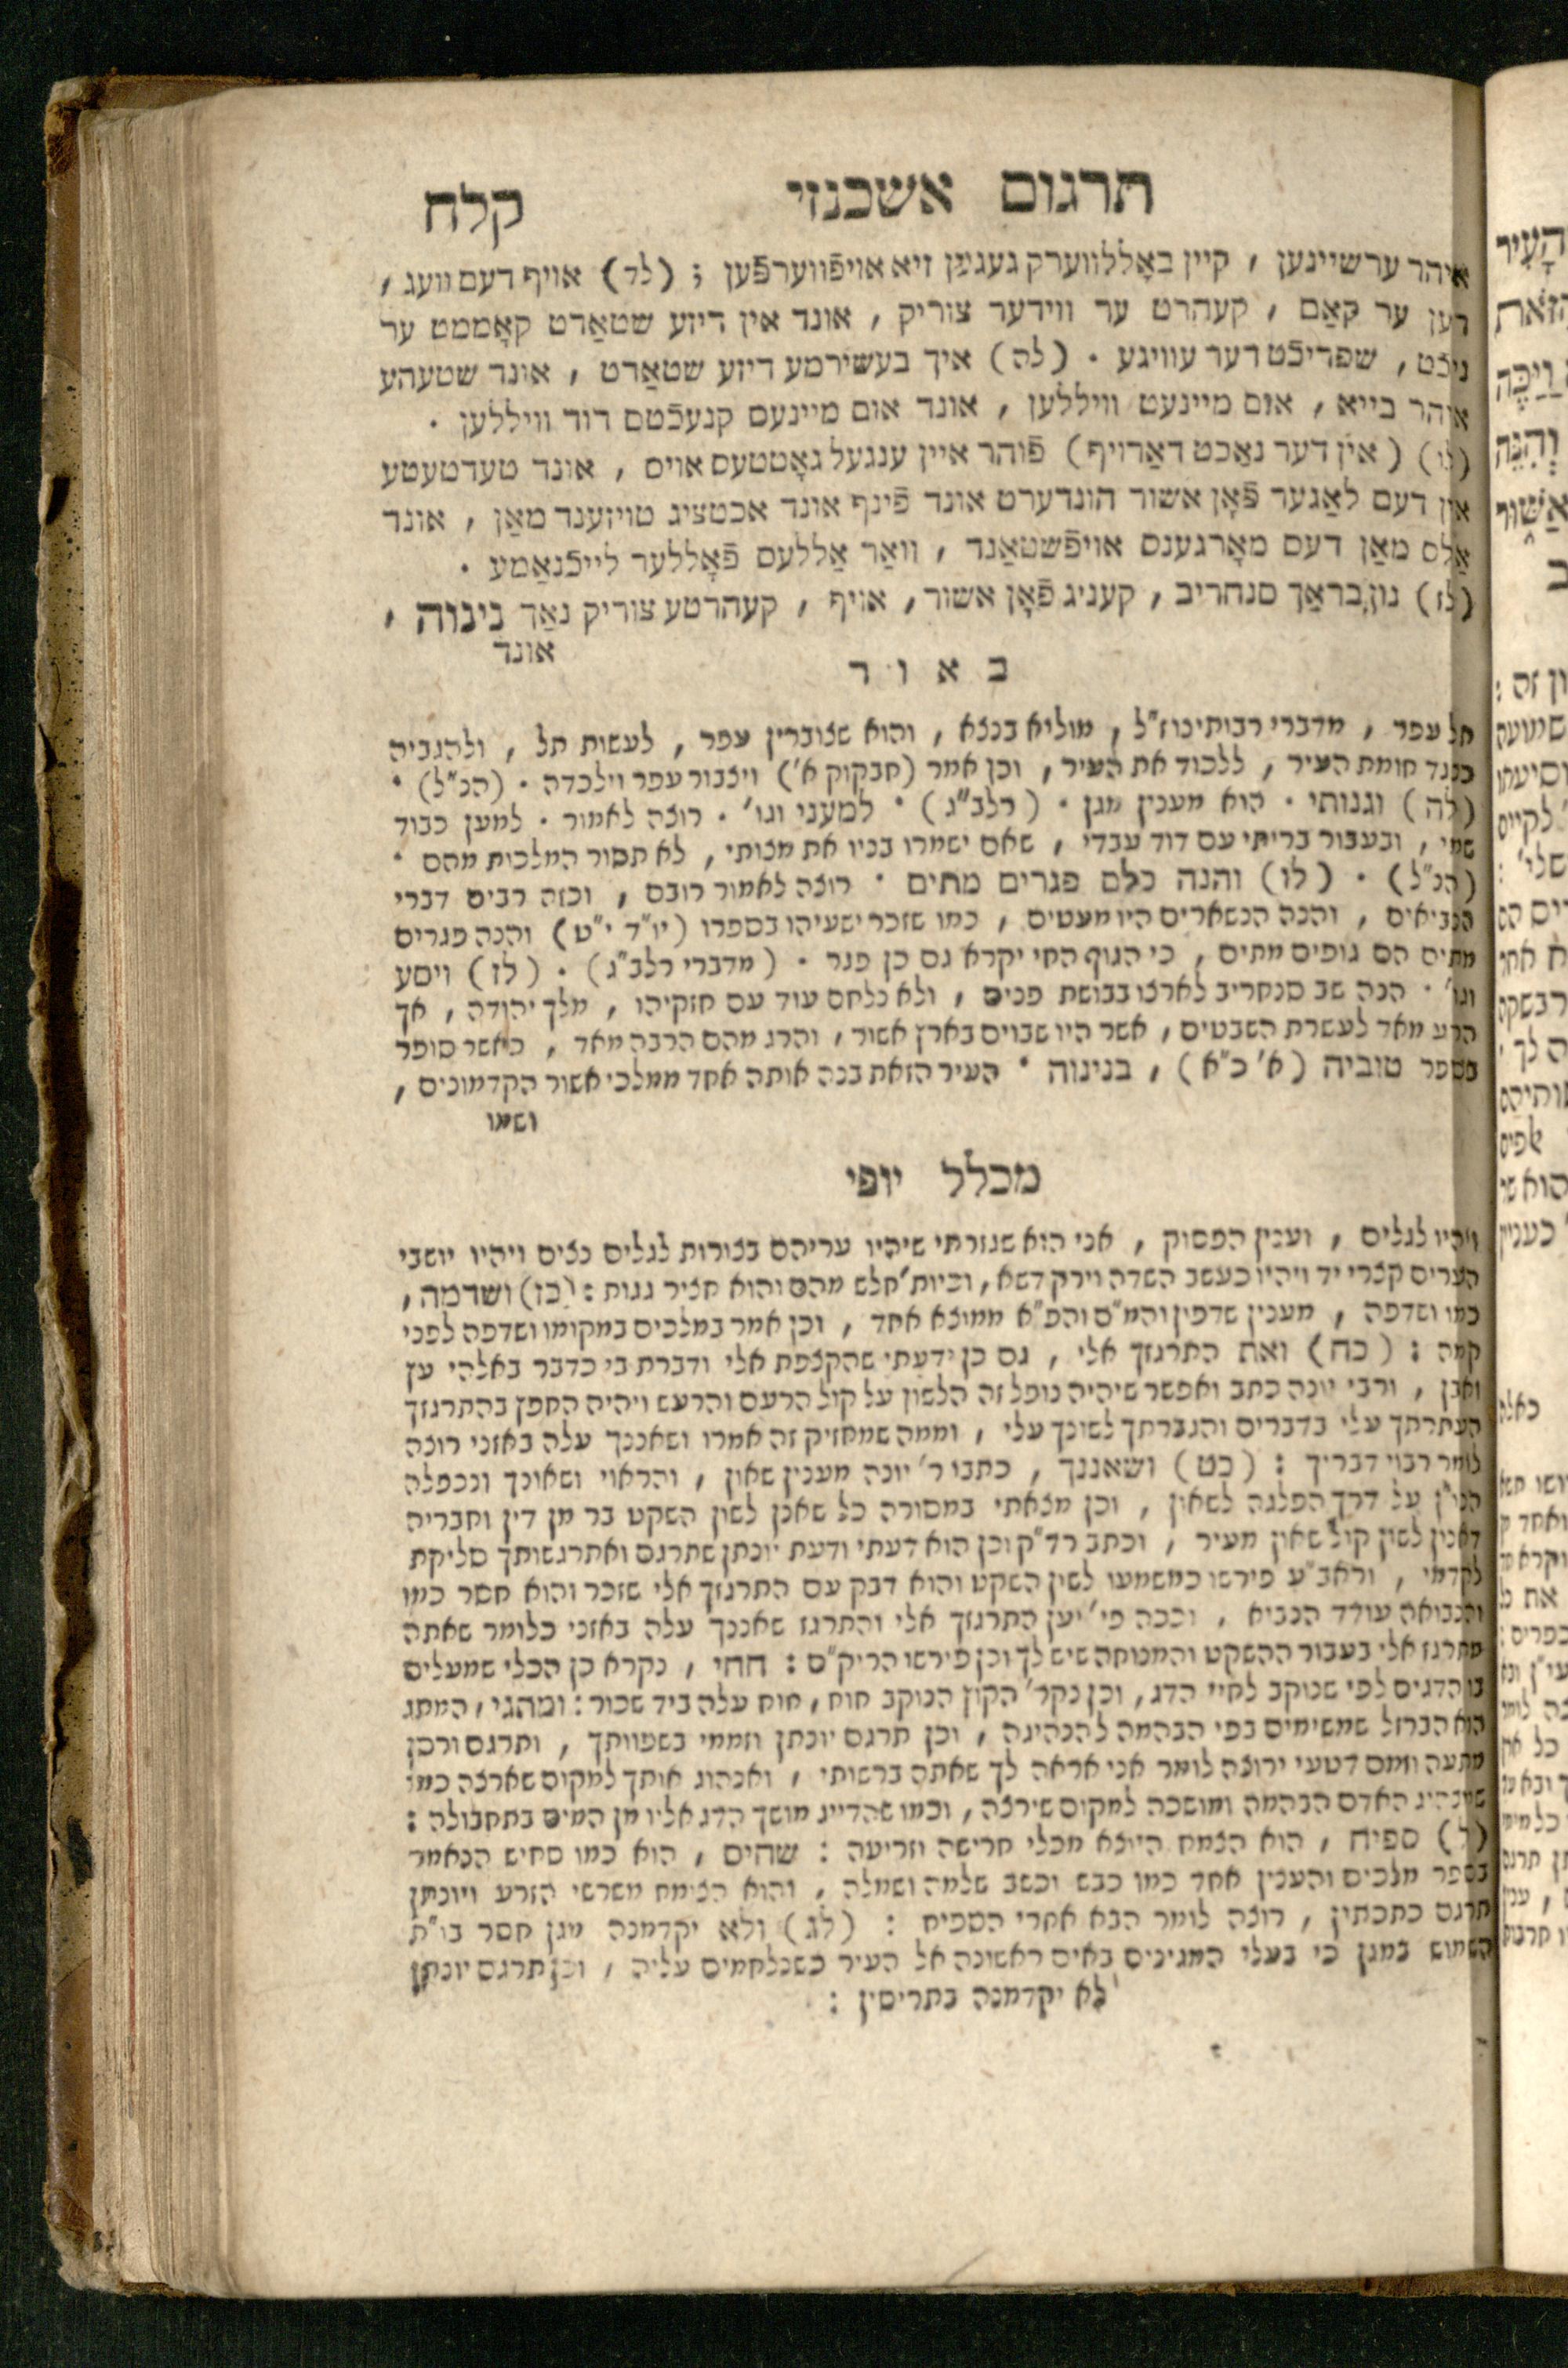 תרגום אשכנזי קלח
איהר ערשיינען , קיין באָללווערק געגען זיא אויפֿווערפֿען ; (לד) אויף דעם וועג ,
דען ער קאַם , קעהרט ער ווידער צוריק , אונד אין דיזע שטאַדט קאָממט ער
ניכֿט , שפריכֿט דער עוויגע . (לה) איך בעשירמע דיזע שטאַדט , אונד שטעהע
איהר בייא , אום מיינעט וויללען , אונד אום מיינעם קנעכֿטס דוד וויללען .
(לו) (אין דער נאַכט דאַרויף) פֿוהר איין ענגעל גאָטטעס אויס , אונד טעדטעטע
אין דעם לאַגער פֿאָן אשור הונדערט אונד פֿינף אונד אכטציג טויזענד מאַן , אונד
אַלס מאַן דעם מאָרגענס אויפֿשטאַנד , וואַר אַללעס פֿאָללער לייכֿנאַמע .
(לז) נון בראַך סנחריב , קעניג פֿאָן אשור , אויף , קעהרטע צוריק נאַך נינוה ,
אונד
באור
תל עפר , מדברי רבותינו ז"ל , מוליא בנצא , והוא שצוברין עפר , לעשות תל , ולהגביה
כנגד חומת העיר , ללכוד את העיר , וכן אמר (חבקוק א') ויצבור עפר וילכדה . (הנ"ל) .
(לה) וגנותי . הוא מענין מגן . (רלב"ג) . למעני וגו' . רוצה לאמור . למען כבוד
שמי , ובעבור בריתי עם דוד עבדי , שאם ישמרו בניו את מצותי , לא תסור המלכות מהם .
(הנ"ל) . (לו) והנה כלם פגרים מתים . רוצה לאמור רובם , וכזה רבים דברי
הנביאים , והנה הנשארים היו מעטים , כמו שזכר ישעיהו בספרו (יו"ד י"ט) והנה פגרים
מתים הם גופים מתים , כי הגוף החי יקרא גם כן פגר . (מדברי רלב"ג) . (לז) ויסע
וגו' . הנה שב סנחריב לארצו בבושת פנים , ולא נלחם עוד עם חזקיהו , מלך יהודה , אך
הרע מאד לעשרת השבטים , אשר היו שבוים בארץ אשור , והרג מהם הרבה מאד , כאשר סופר
בספר טוביה (א' כ"א) , בנינוה . העיר הזאת בנה אותה אחד ממלכי אשור הקדמונים ,
ושמו
מכלל יופי
ויהיו לגלים , וענין הפסוק , אני הוא שגזרתי שיהיו עריהם בצורות לגלים נצים ויהיו יושבי
הערים קצרי יד ויהיו כעשב השדה וירק דשא , וביות' חלש מהם והוא חציר גגות : (כז) ושדמה ,
כמו ושדפה , מענין שדפין והמ"ם והפ"א ממוצא אחד , וכן אמר במלכים במקומו ושדפה לפני
קמה : (כח) ואת התרגזך אלי , גם כן ידעתי שהקצפת אלי ודברת בי כדבר באלהי עץ
ואבן , ורבי יונה כתב ואפשר שיהיה נופל זה הלשון על קול הרעם והרעש ויהיה החפץ בהתרגזך
העתרתך עלי בדברים והגברתך לשונך עלי , וממה שמחזיק זה אמרו ושאננך עלה באזני רוצה
לומר רבוי דבריך : (כט) ושאננך , כתבו ר' יונה מענין שאון , והראוי ושאונך ונכפלה
הנו"ן על דרך הפלגה לשאון , וכן מצאתי במסורה כל שאנן לשון השקט בר מן דין וחבריה
דאנון לשון קול שאון מעיר , וכתב רד"ק וכן הוא דעתי ודעת יונתן שתרגם ואתרגשותך סליקת
לקדמי , וראב"ע פירשו כמשמעו לשון השקט והוא דבק עם התרגזך אלי שזכר והוא חסר כמו
והנבואה עודד הנביא , וככה פי' יען התרגזך אלי והתרגז שאננך עלה באזני כלומר שאתה
מתרגז אלי בעבור ההשקט והמנוחה שיש לך וכן פירשו הריק"ם : חחי , נקרא כן הכלי שמעלים
בו הדגים לפי שנוקב לחיי הדג , וכן נקר' הקוץ הנוקב חוח , חוח עלה ביד שכור : ומתגי , המתג
הוא הברזל שמשימים בפי הבהמה להנהיגה , וכן תרגם יונתן וזממי בשפוותך , ותרגם ורסן
מתעה וזמם דטעי ירוצה לומר אני אראה לך שאתה ברשותי , ואנהוג אותך למקום שארצה כמו
שמנהיג האדם הבהמה ומושכה למקום שירצה , וכמו שהדייג מושך הדג אליו מן המים בתחבולה :
(ל) ספיח , הוא הצמח היוצא מכלי חרישה וזריעה : שחים , הוא כמו סחיש הנאמר
בספר מלכים והענין אחד כמו כבש וכשב שלמה ושמלה , והוא הצומח משרשי הזרע ויונתן
תרגם כתכתין , רוצה לומר הבא אחרי הספיח : (לג) ולא יקדמנה מגן חסר בו"ת
השמוש במגן כי בעלי המגינים באים ראשונה אל העיר כשנלחמים עליה , וכן תרגם יונתן
לא יקדמנה בתריסין :